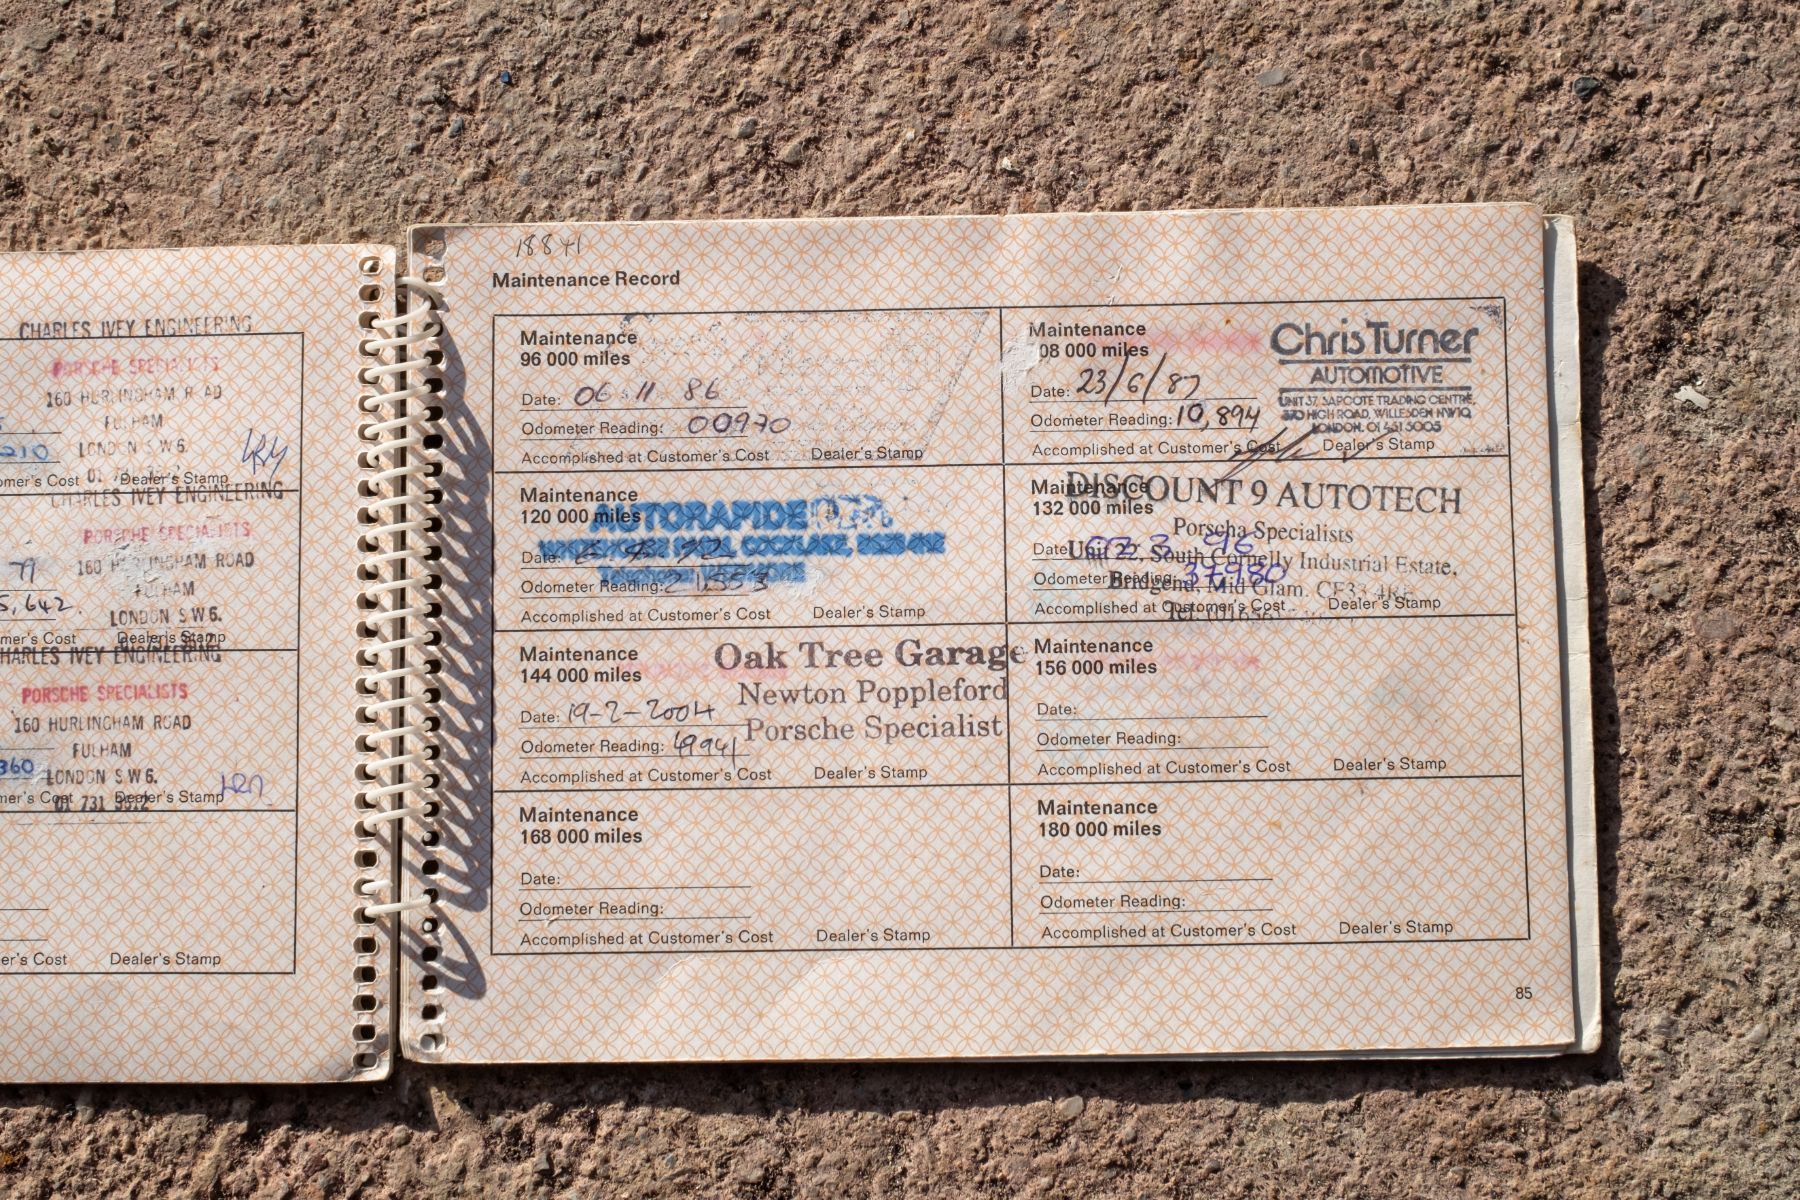 CHARLES IVEY ENGINEERING
PORSCHE SPECIALISTS
160 HURLINGHAM ROAD
FULHAM
LONDON S W 6.
Dealer's Stamp
CHARLES IVEY ENGINEERING
PORSCHE SPECIALISTS
79
160 HURLINGHAM ROAD
FULHAM
5,642.
LONDON S W 6.
Dealer's Stamp
CHARLES IVEY ENGINEERING
PORSCHE SPECIALISTS
160 HURLINGHAM ROAD
FULHAM
360
LONDON S W 6.
Dealer's Stamp
01 731 3612
Dealer's Stamp
Maintenance Record
Maintenance
96 000 miles
Date: 06 11 86
Odometer Reading: 00970
Accomplished at Customer's Cost Dealer's Stamp
Maintenance
08 000 miles
Date: 23/6/87
Odometer Reading: 10,894
Accomplished at Customer's Cost Dealer's Stamp
Chris Turner
AUTOMOTIVE
UNIT 37, SAPCOTE TRADING CENTRE,
370 HIGH ROAD, WILLESDEN NW10,
LONDON. 01 451 5005
Maintenance
120 000 miles
AUTORAPIDE
Date:
Odometer Reading: 21553
Accomplished at Customer's Cost Dealer's Stamp
Maintenance
132 000 miles
DISCOUNT 9 AUTOTECH
Porscha Specialists
Date:
Unit 22, South Cornelly Industrial Estate,
Odometer Reading: 37980
Bridgend, Mid Glam. CF33 4RE
Accomplished at Customer's Cost Dealer's Stamp
Tel:
Maintenance
144 000 miles
Oak Tree Garage
Newton Poppleford
Porsche Specialist
Date: 19-2-2004
Odometer Reading: 49941
Accomplished at Customer's Cost Dealer's Stamp
Maintenance
156 000 miles
Date:
Odometer Reading:
Accomplished at Customer's Cost Dealer's Stamp
Maintenance
168 000 miles
Date:
Odometer Reading:
Accomplished at Customer's Cost Dealer's Stamp
Maintenance
180 000 miles
Date:
Odometer Reading:
Accomplished at Customer's Cost Dealer's Stamp
85